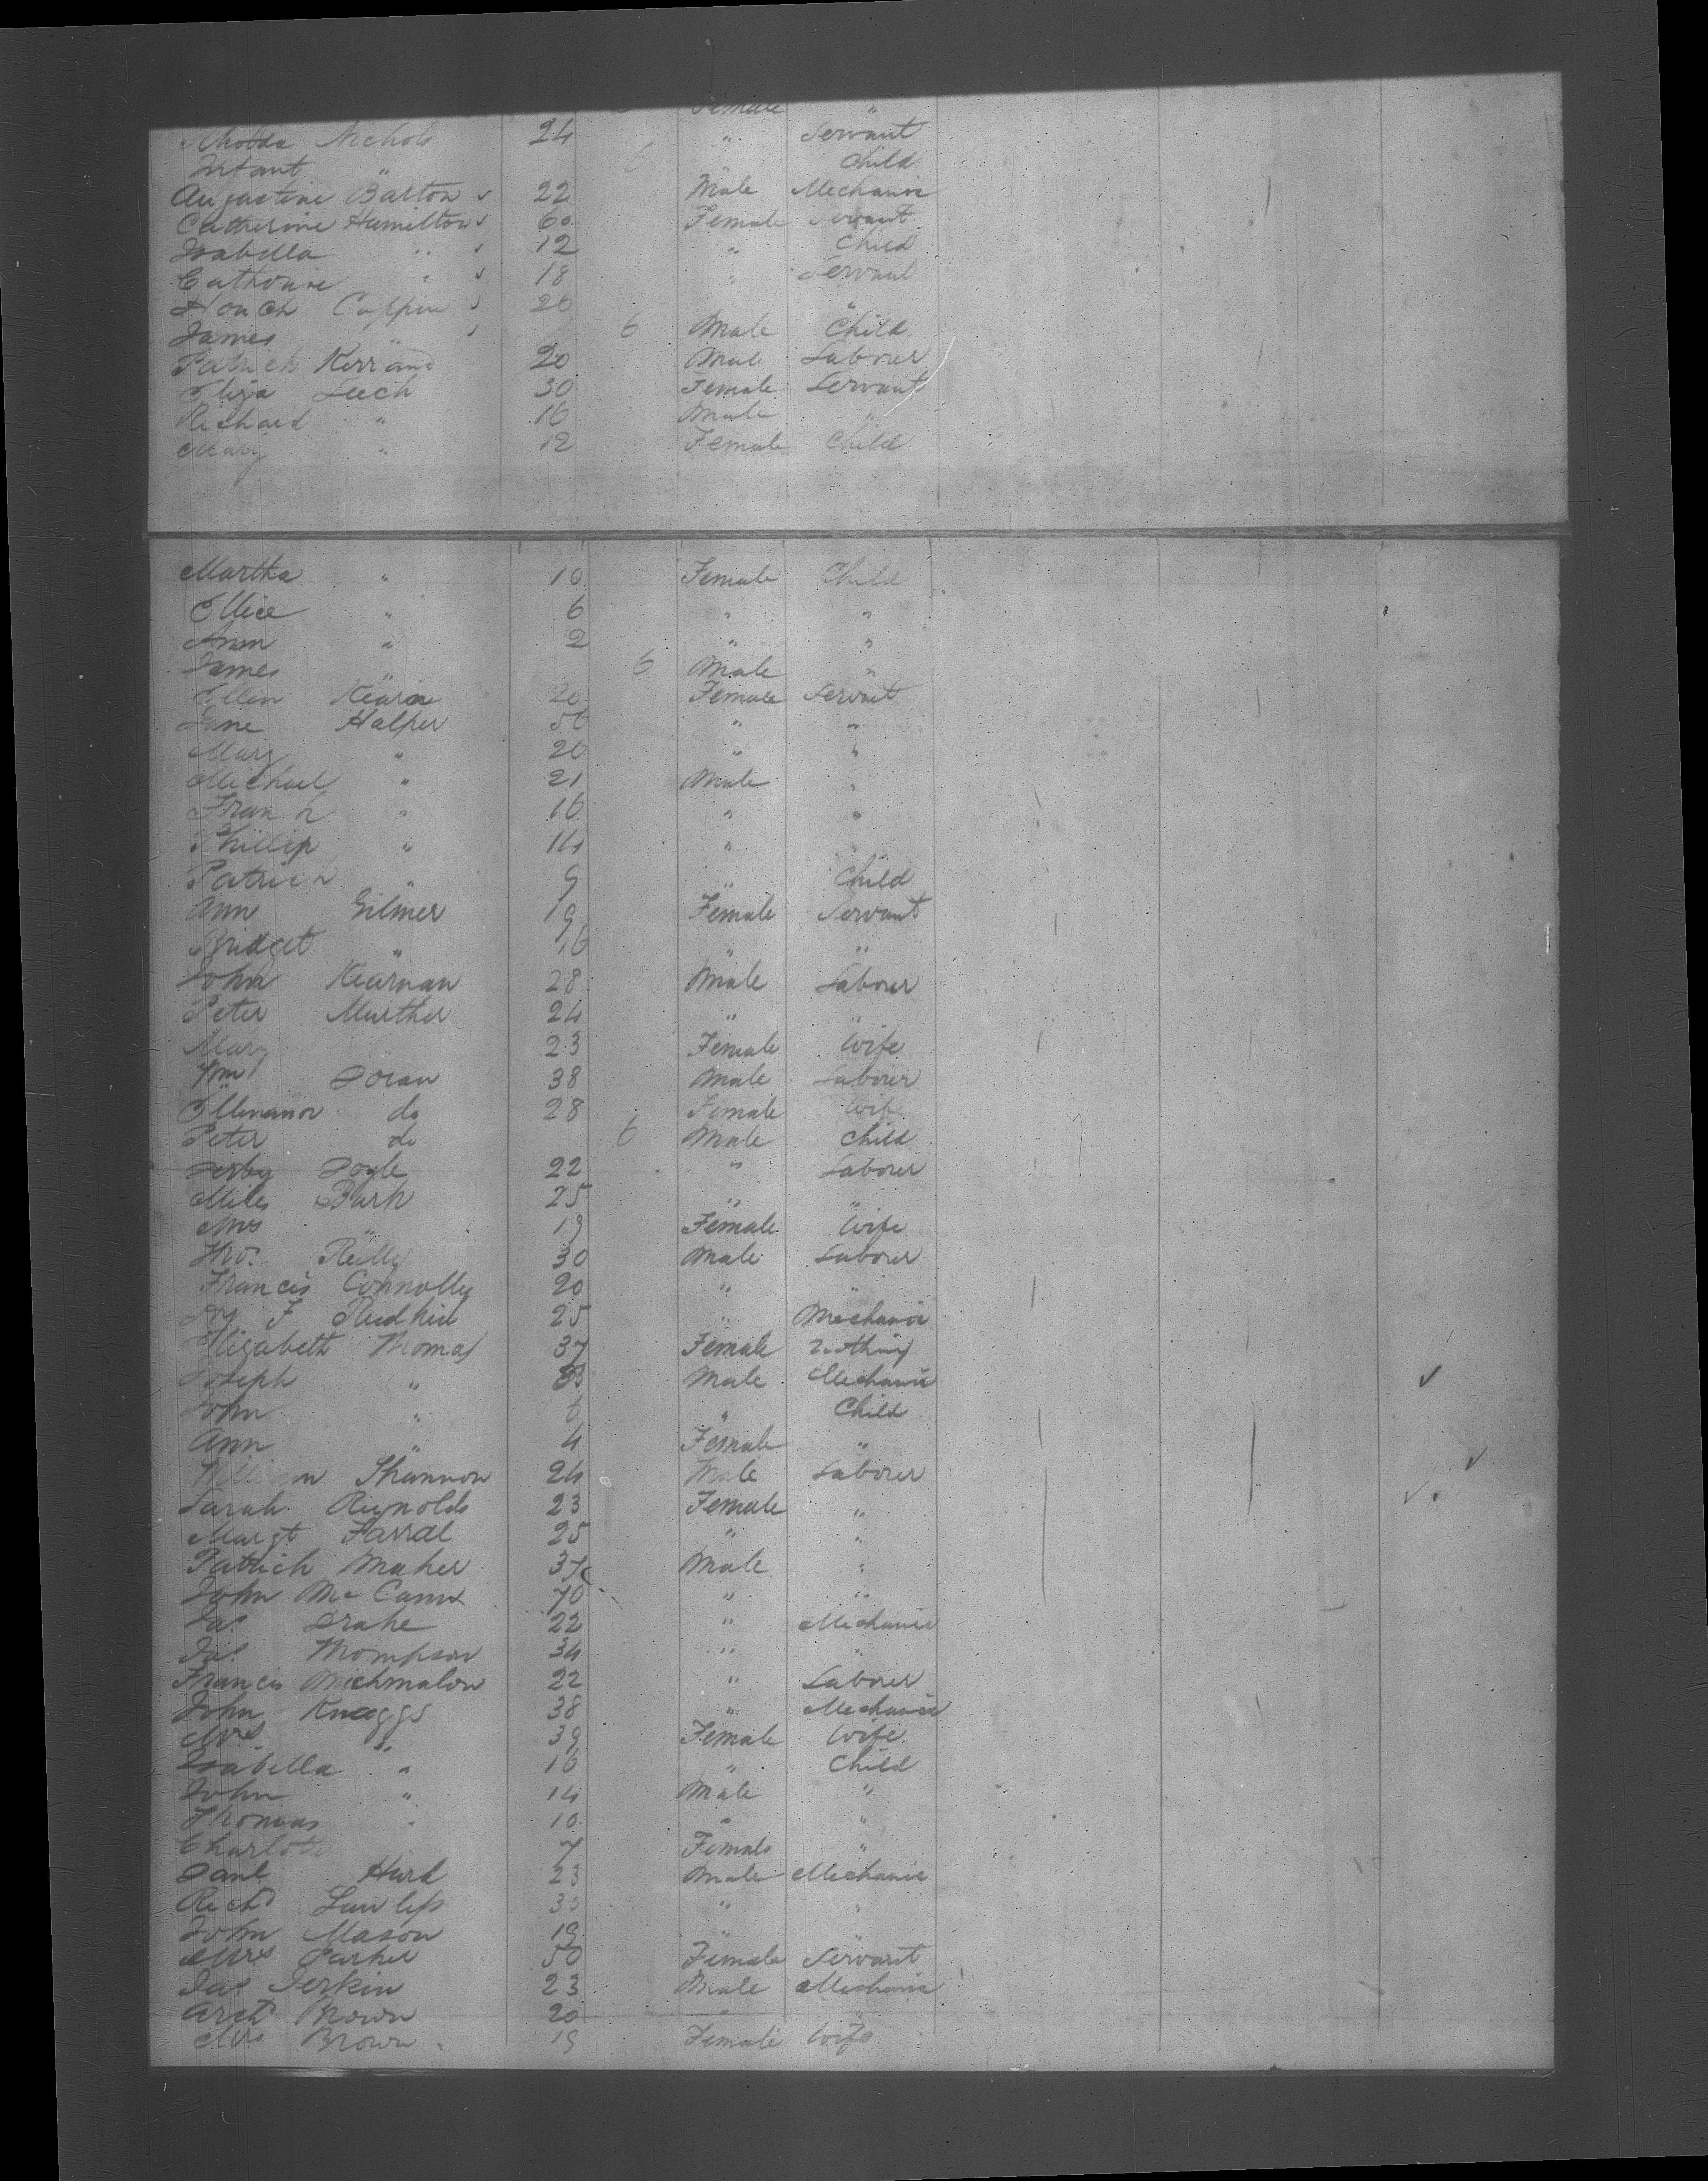 Female "
Nichols 24 " Servant
Infant " 6 Child
Augustine Barton 22 Male Mechanic
Catherine Hamilton 60 Female Servant
Isabella " 12 " Child
Catherine " 18 " Servant
20 "
James " 6 Male Child
Patrick 20 Male Laborer
Eliza Leech 30 Female Servant
Richard " 16 Male "
Mary " 12 Female Child
Martha " 10 Female Child
Ellice " 6 " "
Ann " 2 " "
James " 6 Male "
Ellen 20 Female Servant
Jane Halper 50 " "
Mary " 20 " "
Michael " 21 Male "
Frank " 16 " "
Phillip " 14 " "
Patrick " 9 " Child
Ann Gilmer 19 Female Servant
Bridget " 16 " "
John Kearnan 28 Male Laborer
Peter Murther 24 " "
Mary 23 Female Wife
Wm Doran 38 Male Laborer
Ellenanor do 28 Female Wife
Peter do 6 Male Child
Doyle 22 " Laborer
Miles Burk 25 " "
Mrs " 19 Female Wife
Reilly 30 Male Laborer
Francis Connolly 20 " "
F Rudkin 25 " Mechanic
Elizabeth Thomas 37 Female Nothing
Joseph " Male Mechanic
John " 6 " Child
Ann " 4 Female "
William Shannon 24 Male Laborer
Sarah Reynolds 23 Female "
Margt Farral 25 " "
Patrick Maher 37 Male "
John Mc Cann 70 " "
Jas Drake 22 " Mechanic
Jas Thompson 34 " "
Francis 22 " Laborer
John Knaggs 38 " Mechanic
Mrs " 39 Female Wife
Isabella " 16 " Child
John " 14 Male "
Thomas " 10 " "
Charlotte 7 Female "
Danl Hurd 23 Male Mechanic
Richd Lawless " "
John Mason 19 " "
Mrs Parker 50 Female Servant
Jas Jerkin 23 Male Mechanic
Archd Brown 20 " "
Mrs Brown 19 Female Wife